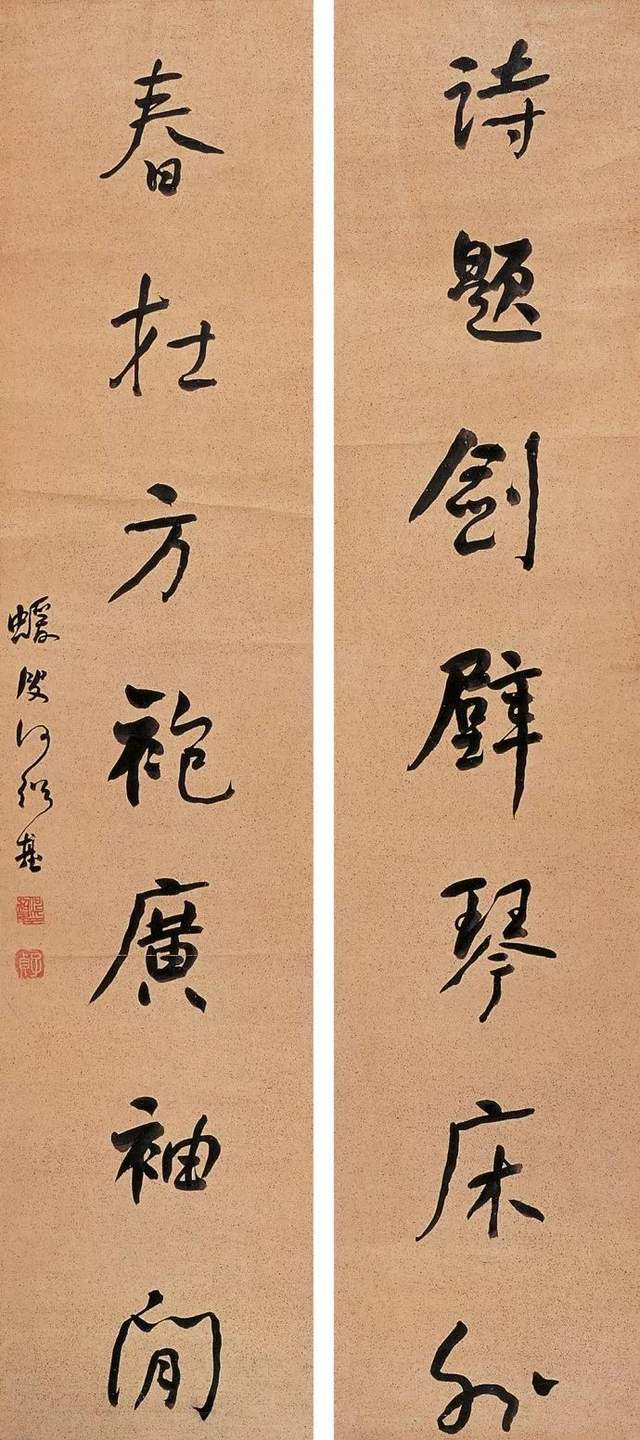 詩題劍壁琴床外
春在方袍廣袖間
蝯叟何紹基
子貞